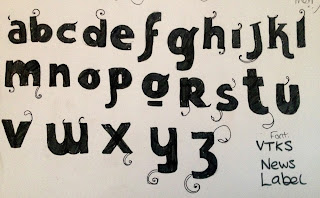 abcdefghijkl
mnopqRstu
vwxyz
Font:
VTKS
News
Label